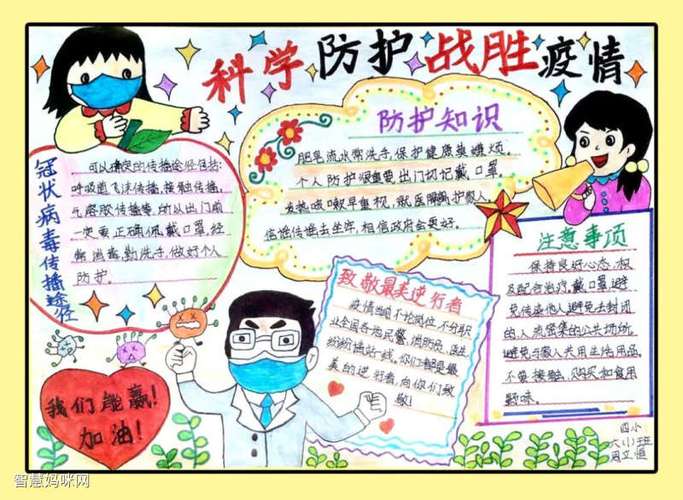 科学防护战胜疫情
冠状病毒传播途径
可以确定的传播途径包括:
呼吸道飞沫传播,接触传播,
气溶胶传播等,所以出门前
一定要正确佩戴口罩,经
常消毒,勤洗手,做好个人
防护。
防护知识
肥皂流水常洗手,保护健康莫嫌烦,
个人防护很重要出门切记戴口罩,
发热咳嗽早重视,就医 护家人
信谣传谣去坐牢,相信政府会更好。
注意事项
保持良好心态,积
极配合治疗,戴口罩,避
免传染他人避免去封闭
的人流密集的公共场所
避免与家人共用生活用品,
不要接触、购买和食用
野味。
致敬最美逆行者
疫情当前不忙岗位,不分职
业全国各地民警,消防员,医生
纷纷援站一线。你们都是最
美的逆行者,向你们致
敬!
我们能赢!
加油!
四小
六(1)班
智慧妈咪网